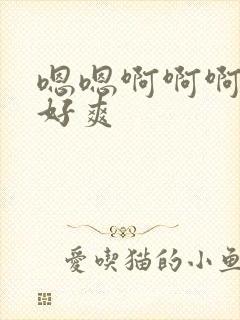 嗯嗯啊啊啊
好爽
愛喫猫的小鱼